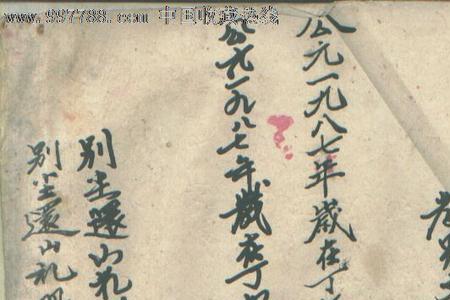 www.997788.com 中国收藏热线
公元一九八七年歲在丁
公元一九八七年歲在丁
别尘還山礼
别尘還山礼